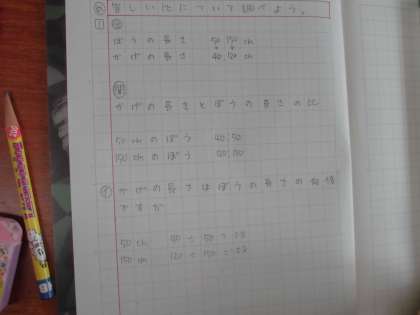 め 等しい比について調べよう。
1 問
ぼうの長さ 50 150 cm
かげの長さ 40 120 cm
問
かげの長さとぼうの長さの比
50cmのぼう 40:50
150cmのぼう 120:150
かげの長さはぼうの長さの何倍
ですか
50cm 40÷50=0.8
150cm 120÷150=0.8